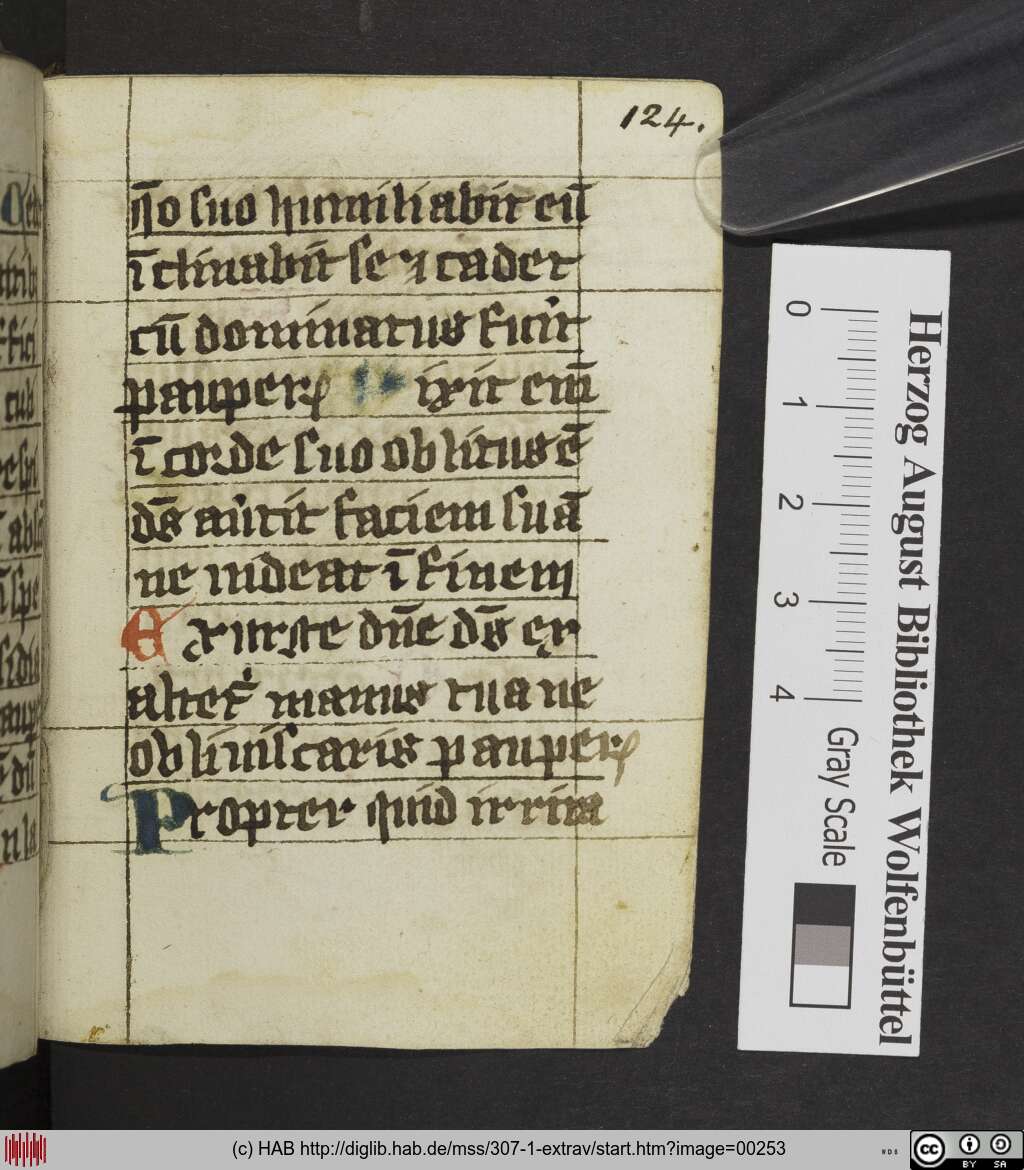 124.
q̄o suo humiliabit eū
ī clinabit se ⁊ cadet
cū dominatus fu'it
pauperꝝ D ixit eni̅
ī corde suo oblitus ē
dē̅s au'tit faciem suā
ne uideat ī finem
E xurge dn̄e ds̄ ex
altet' manus tua ne
obliuiscaris pauperꝝ
Propter quid irrita
Herzog August Bibliothek Wolfenbüttel
0 1 2 3 4
Gray Scale
(c) HAB http://diglib.hab.de/mss/307-1-extrav/start.htm?image=00253
cc BY SA